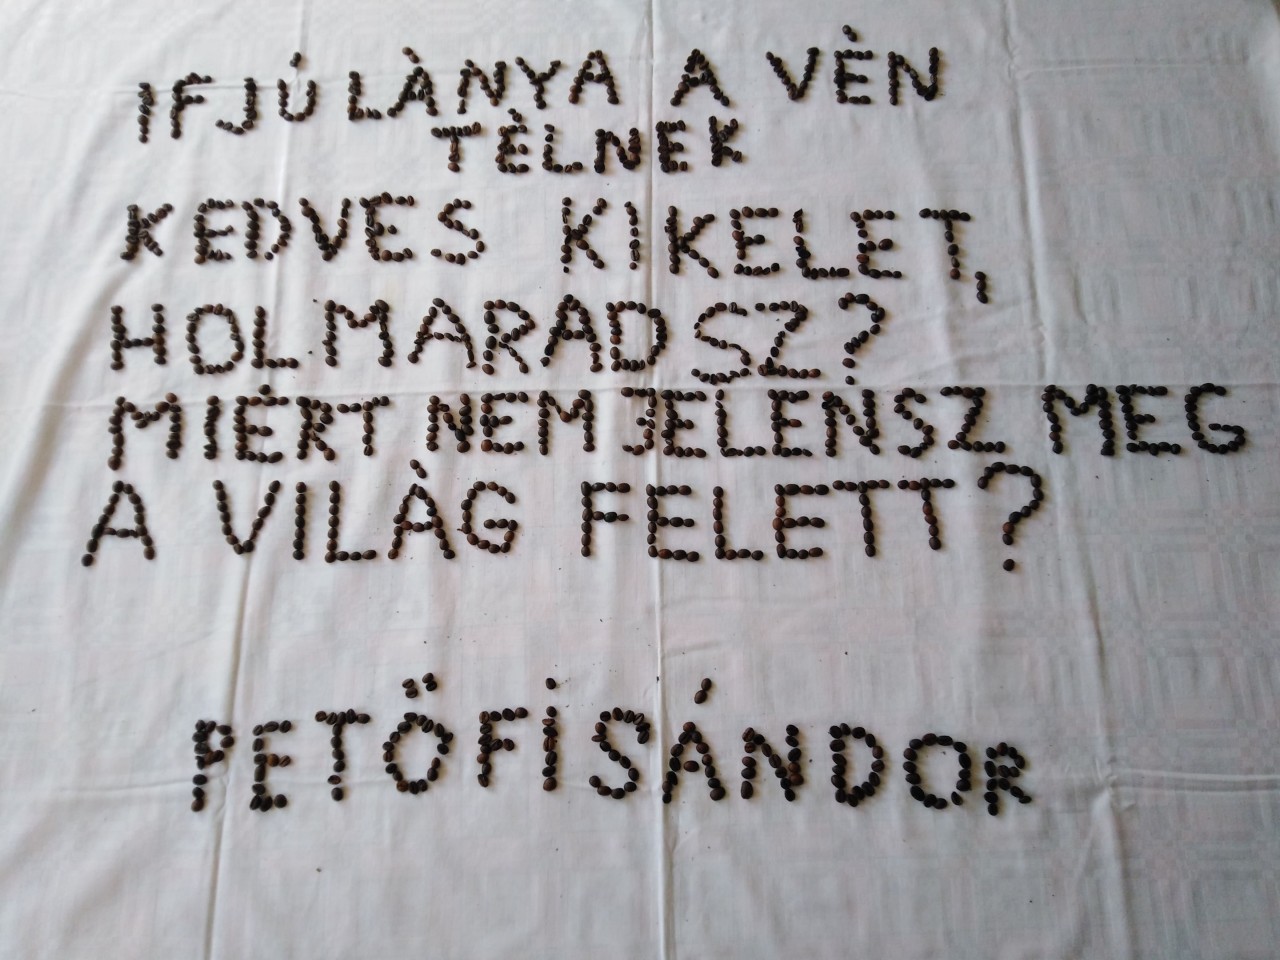 IFJÚ LÀNYA A VÉN
TÉLNEK
KEDVES KIKELET,
HOL MARADSZ?
MIÉRT NEM JELENSZ MEG
A VILÀG FELETT?
PETŐFI SÁNDOR